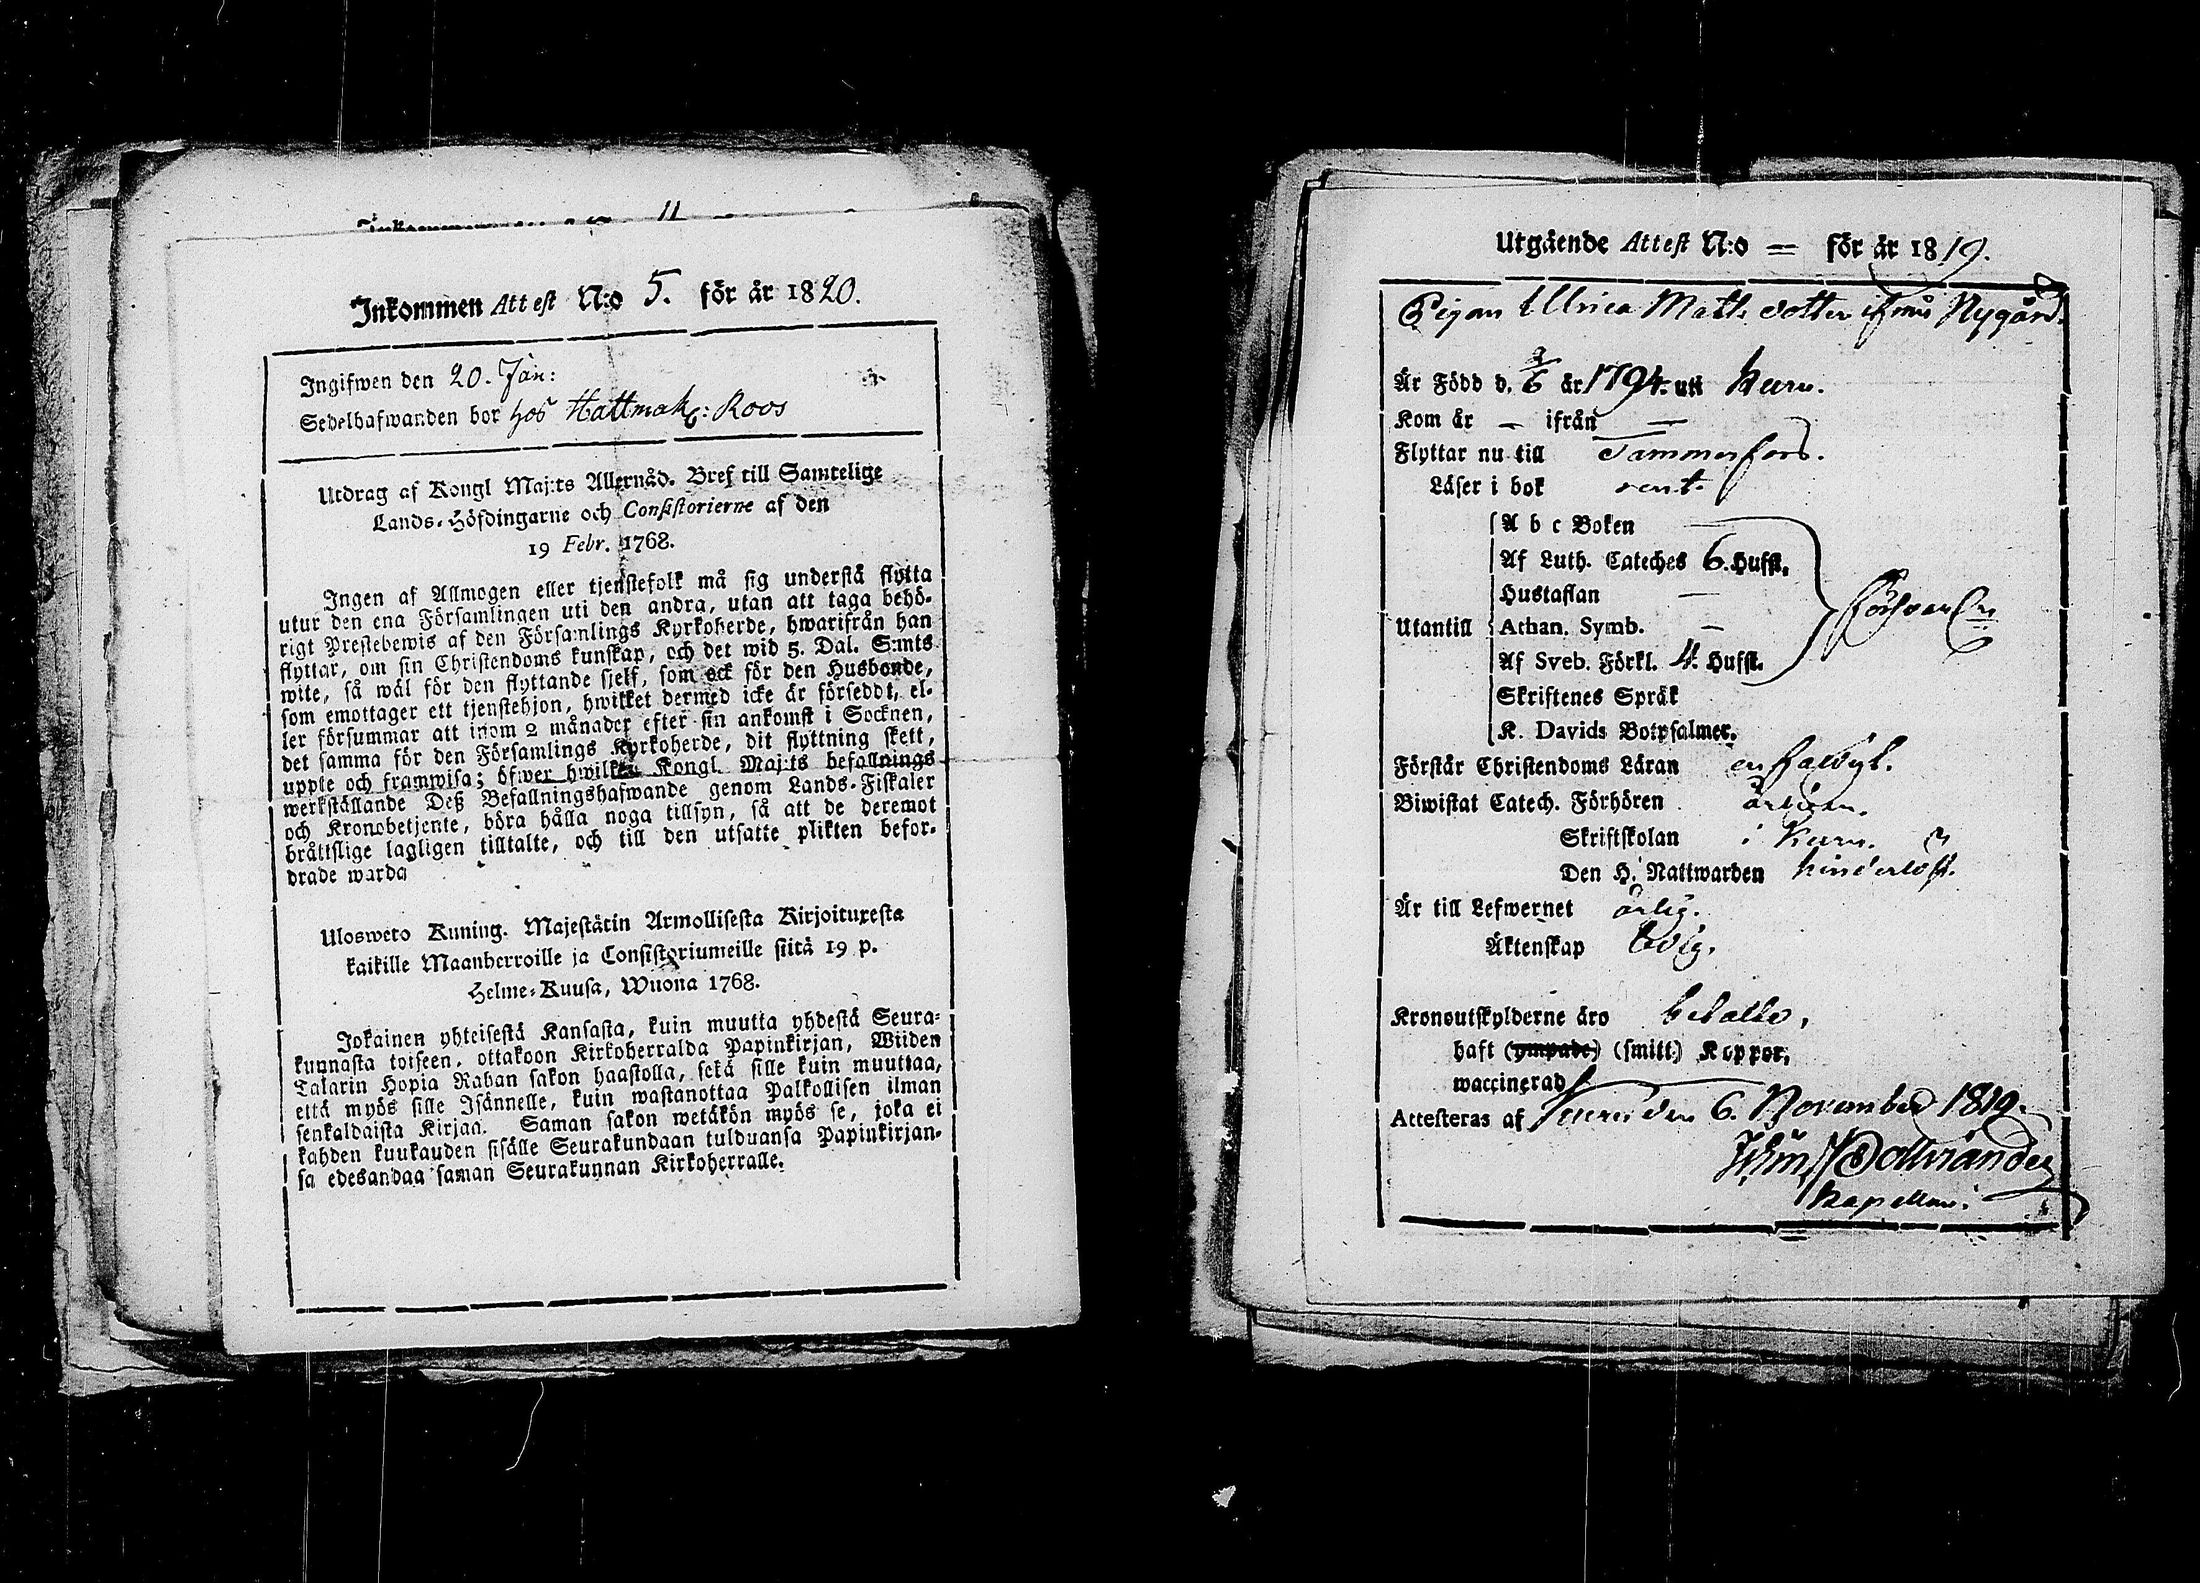 11
Inkommen Attest N:o 5. för år 1820.
Ingifwen den 20. Jan:
Sedelhafwanden bor hos Hattmak: Roos
Utdrag af Kongl Maj:ts Allernåd. Bref till Samtelige
Lands-Höfdingarne och Consistorierne af den
19 Febr. 1768.
Ingen af Allmogen eller tjenstefolk må sig understå flytta
utur den ena Församlingen uti den andra, utan att taga behö-
rigt Prestebewis af den Församlings Kyrkoherde, hwarifrån han
flyttar, om sin Christendoms kunskap, och det wid 5. Dal. S:mts
wite, så wäl för den flyttande sjelf, som ock för den Husbonde,
som emottager ett tjenstehjon, hwilket dermed icke är försedt, el-
ler försummar att inom 2 månader efter sin ankomst i Socknen,
det samma för den Församlings Kyrkoherde, dit flyttning skett,
uppte och framwisa; öfwer hwilken Kongl. Maj:ts befallnings
werkställande Deß Befallningshafwande genom Lands-Fiskaler
och Kronobetjente, böra hålla noga tillsyn, så att de deremot
bråttslige lagligen tilltalte, och till den utsatte plikten befor-
drade warda
Ulosweto Kuning. Majestätin Armollisesta Kirjoituxesta
kaikille Maanherroille ja Consistoriumeille siitä 19 p.
Helme-Kuusa, Wuona 1768.
Jokainen yhteisestä Kansasta, kuin muutta yhdestä Seura-
kunnasta toiseen, ottakoon Kirkoherralda Papinkirjan, Wiiden
Talarin Hopia Rahan sakon haastolla, sekä sille kuin muuttaa,
että myös sille Isännelle, kuin wastanottaa Palkollisen ilman
senkaldaista Kirjaa. Saman sakon wetäkön myös se, joka ei
kahden kuukauden sisälle Seurakundaan tulduansa Papinkirjan-
sa edesandaa saman Seurakunnan Kirkoherralle.
Utgående Attest N:o = för år 1819.
Pigan Ullrica Matts dotter ifrån Nygård.
Är Född d. 2/6 år 1794. uti Kuru.
Kom år — ifrån —
Flyttar nu till Tammerfors.
Läser i bok rent.
A b c Boken —
Af Luth. Cateches 6. Hufst.
Hustaflan —
Utantill Athan. Symb. —
Af Sveb. Förkl. 4. Hufst.
Skriftenes Språk
K. Davids Botpsalmer.
Förstår Christendoms Läran enfaldigt.
Biwistat Catech. Förhören årligen.
Skriftskolan i Kuru.
Den H. Nattwarden hinderlöst.
Är till Lefwernet ärlig.
Äktenskap ledig.
Kronoutskylderne äro betalte,
haft (ympade) (smitt:) Koppor,
waccinerad
Attesteras af Kuru den 6. November 1819.
Kapellan.